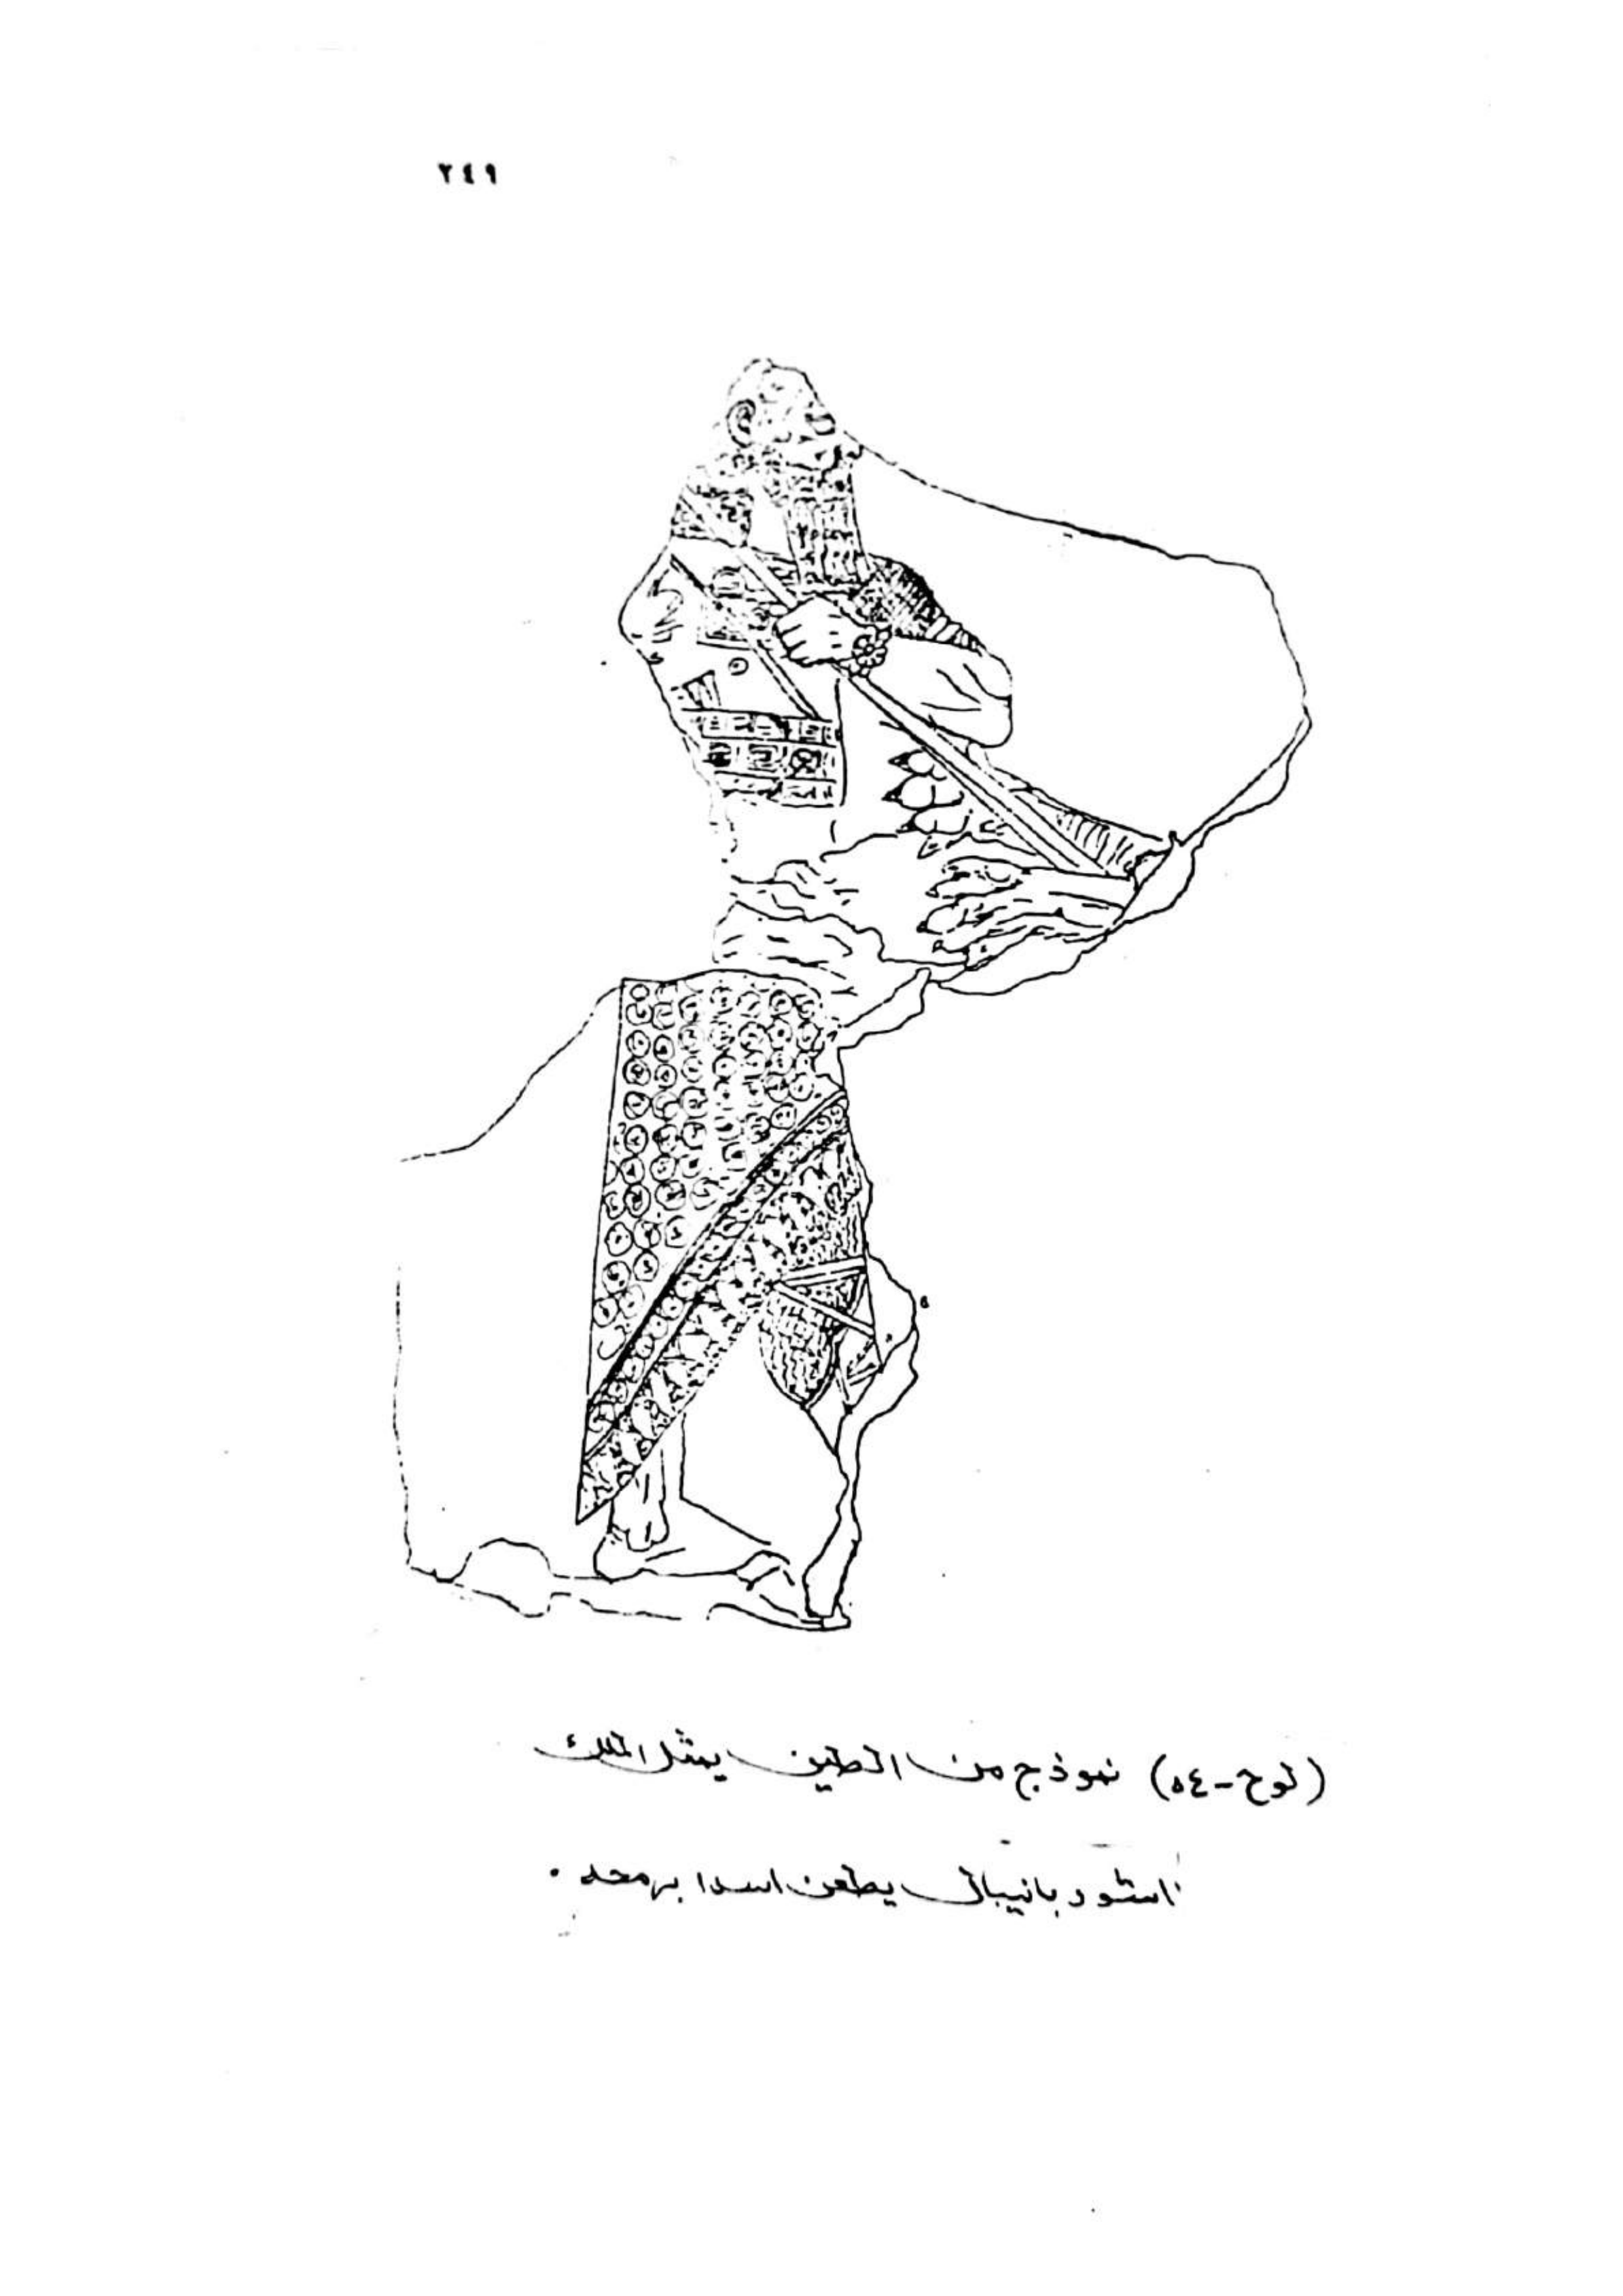 ٢٤٩
(لوح-٥٤) نموذج من الطين يمثل الملك
اشور بانيبال يطعن اسدا برمحه .